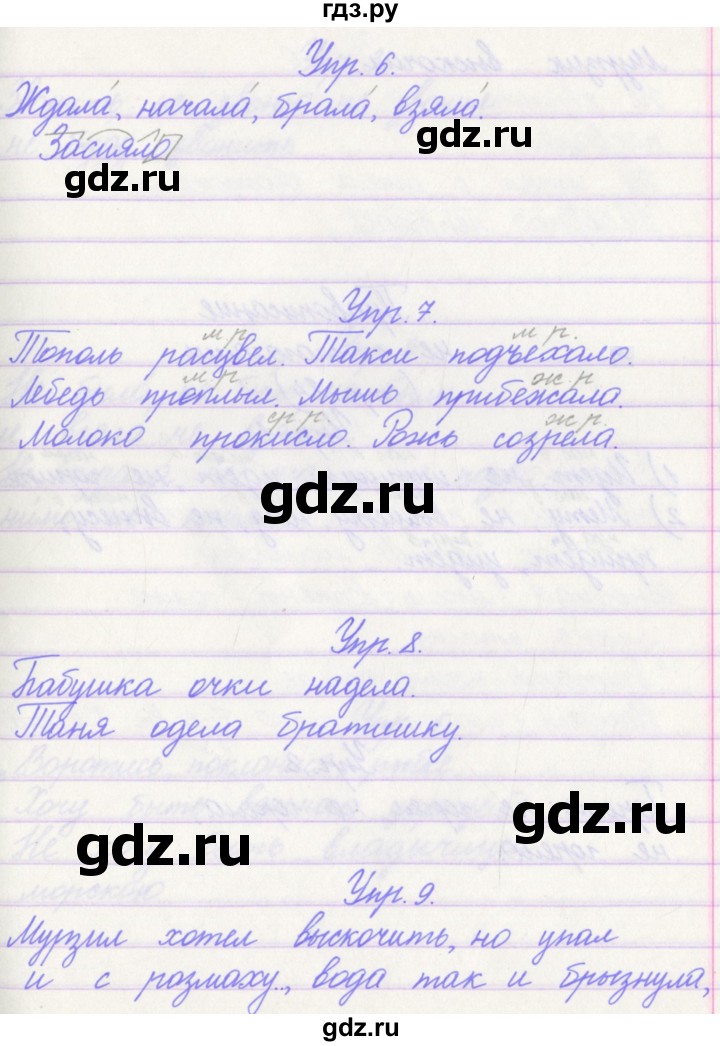 гдз.ру
Упр. 6.
Ждала́, начала́, брала́, взяла́.
Засияло
gdz.ru
gdz.ru
Упр. 7.
м р. м р.
Тополь расцвел. Такси подъехало.
м р. ж р
Лебедь проплыл. Мышь прибежала.
ср р. ж р.
Молоко прокисло. Рожь созрела.
gdz.ru
Упр. 8.
Бабушка очки надела.
Таня одела братишку.
gdz.ru
gdz.ru
Упр. 9.
Мурзил хотел выскочить, но упал
и с розмаху.., вода так и брызнула,
gdz.ru